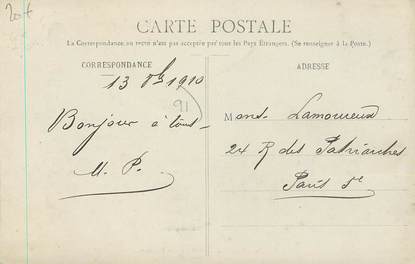 20f
CARTE POSTALE
La Correspondance au recto n'est pas acceptée par tous les Pays Étrangers. (Se renseigner à la Poste.)
CORRESPONDANCE
13 1910
91
Bonjour à tous —
M. P.
ADRESSE
Lamoureux
24 R des Patriarches
Paris 5e